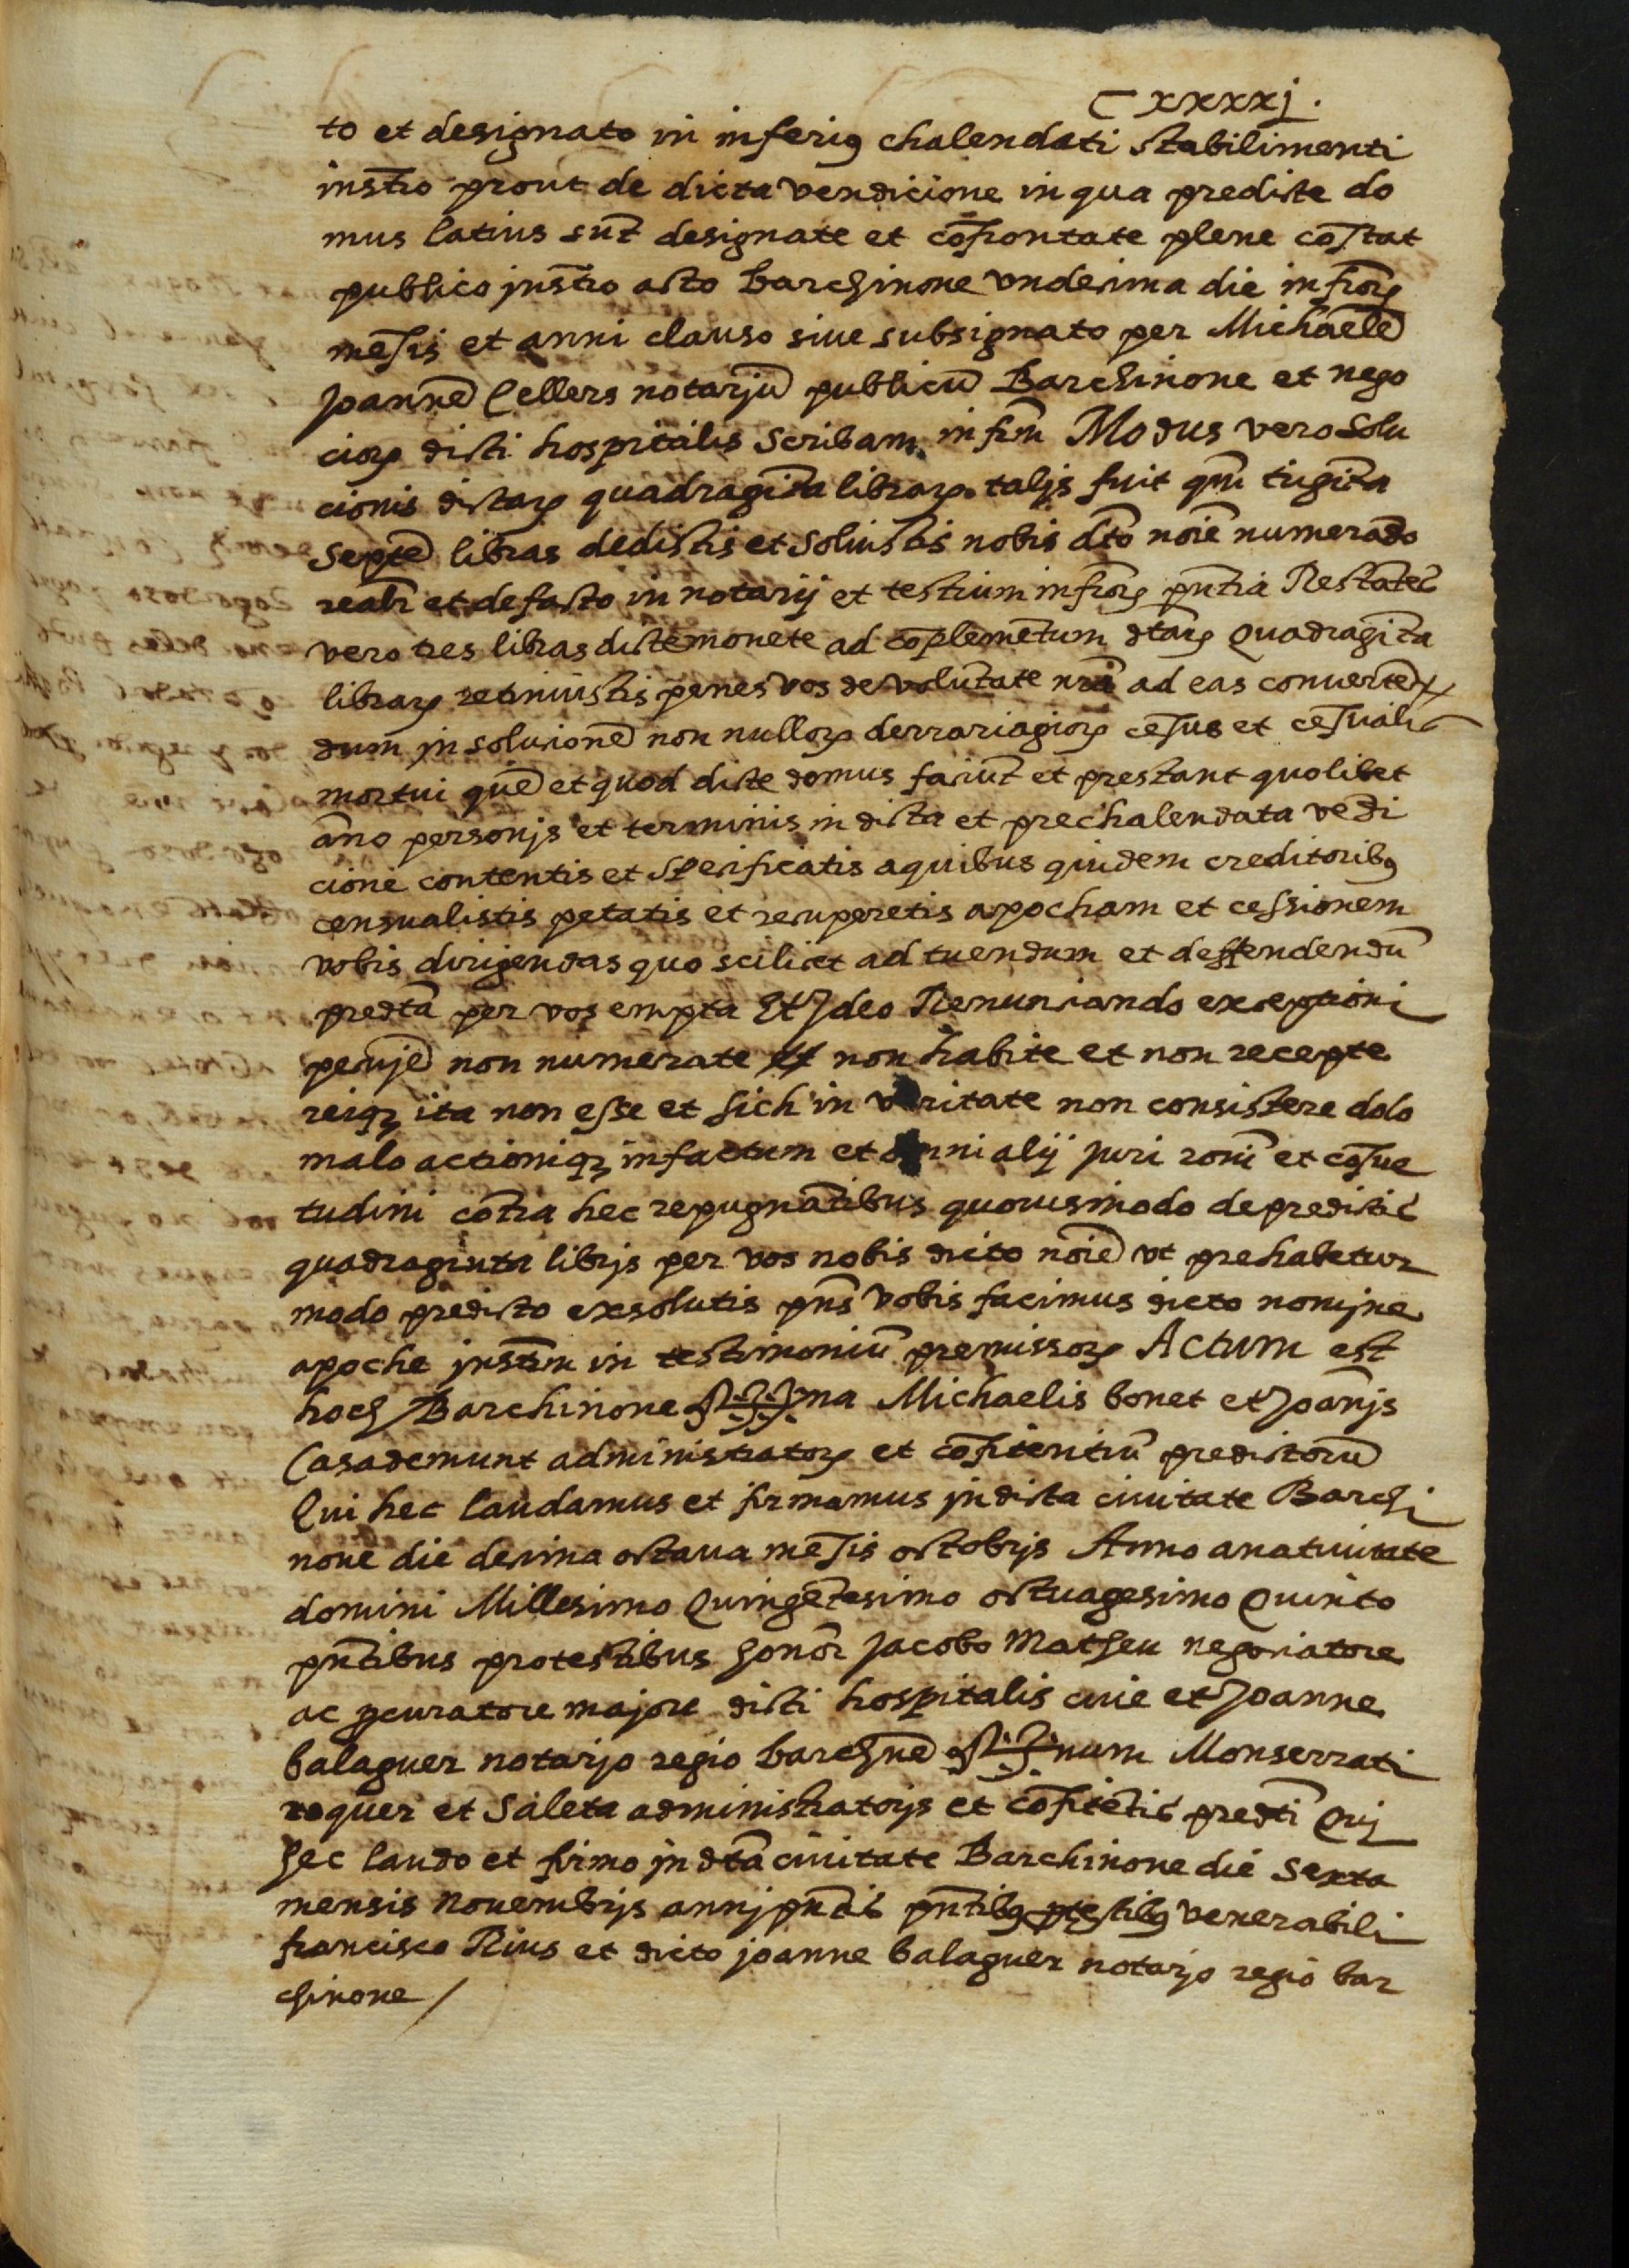 Cxxxxj.
to et designato in inferiꝯ chalendati stabilimenti
instr̄o prout de dicta vendicione in qua predicte do
mus latius sūt designate et cōfrontate plene cōstat
publico jnstr̄o acto barchinone vndecima die infrōꝝ
mēsis et anni clauso siue subsignato per Michaelē
Joannē Cellers notarjū publicū Barchinone et nego
cioꝝ dicti hospitalis scribam infrm̄ Modus vero solu
cionis dictaꝝ quadragīta libraꝝ taljs fuit qm̄ trigīta
septē libras dedistis et soluistis nobis dc̄to noīe numerādo
realr̄ et de facto in notarij et testium infrōꝝ pn̄tia Restātes
vero tres libras dicte monete ad cōplemētum dc̄taꝝ quadragīta
libraꝝ retinuistis penes vos de volūtate nr̄a ad eas conuertē
dum jn solucionē non nulloꝝ derrariagioꝝ cēsus et cēsualis
mortui quē et quod dicte domus faciūt et prestant quolibet
āno personjs et terminis in dicta et prechalendata vēdi
cione contentis et specificatis a quibus quidem creditoribꝯ
censualistis petatis et recuperetis apocham et cessionem
vobis dirigendas quo scilicet ad tuendum et deffendendū
predc̄ta per vos empta Et Jdeo Renunciando exceptioni
pecunjē non numerate non habite et non recepte
reiqꝫ ita non esse et sich in veritate non consistere dolo
malo actioniqꝫ infactum et omni alij juri rōni et cōsue
tudini cōtra hec repugnātibus quouismodo de predictis
quadraginta librjs per vos nobis dicto noīe vt prehabetur
modo predicto exsolutis pn̄s vobis facimus dicto nomjne
apoche jnstm̄ in testimoniū premissoꝝ Actum est
hoch Barchinone Sig✠na Michaelis bonet et Joānjs
Casademunt administratoꝝ et cōfitentiū predictorū
Qui hec laudamus et firmamus jn dicta ciuitate Barchi
none die decima octaua mēsis octobrjs Anno a natiuitate
domini Millesimo Quingētesimo octuagesimo Quinto
pn̄tibus pro testibus honōr Jacobo Matheu negociatore
ac ꝓcuratore majore dicti hospitalis ciue et Joanne
balaguer notarjo regio barchn̄e Sig✠num Monserrati
roquer et Saleta administratorjs et cōfitētis predc̄ti Quj
hec laudo et firmo jn dc̄ta ciuitate Barchinone die sexta
mensis nouembrjs annj pn̄tis pn̄tibꝯ ꝓ testibꝯ venerabili
francisco Rius et dicto joanne balaguer notarjo regio bar
chinone /